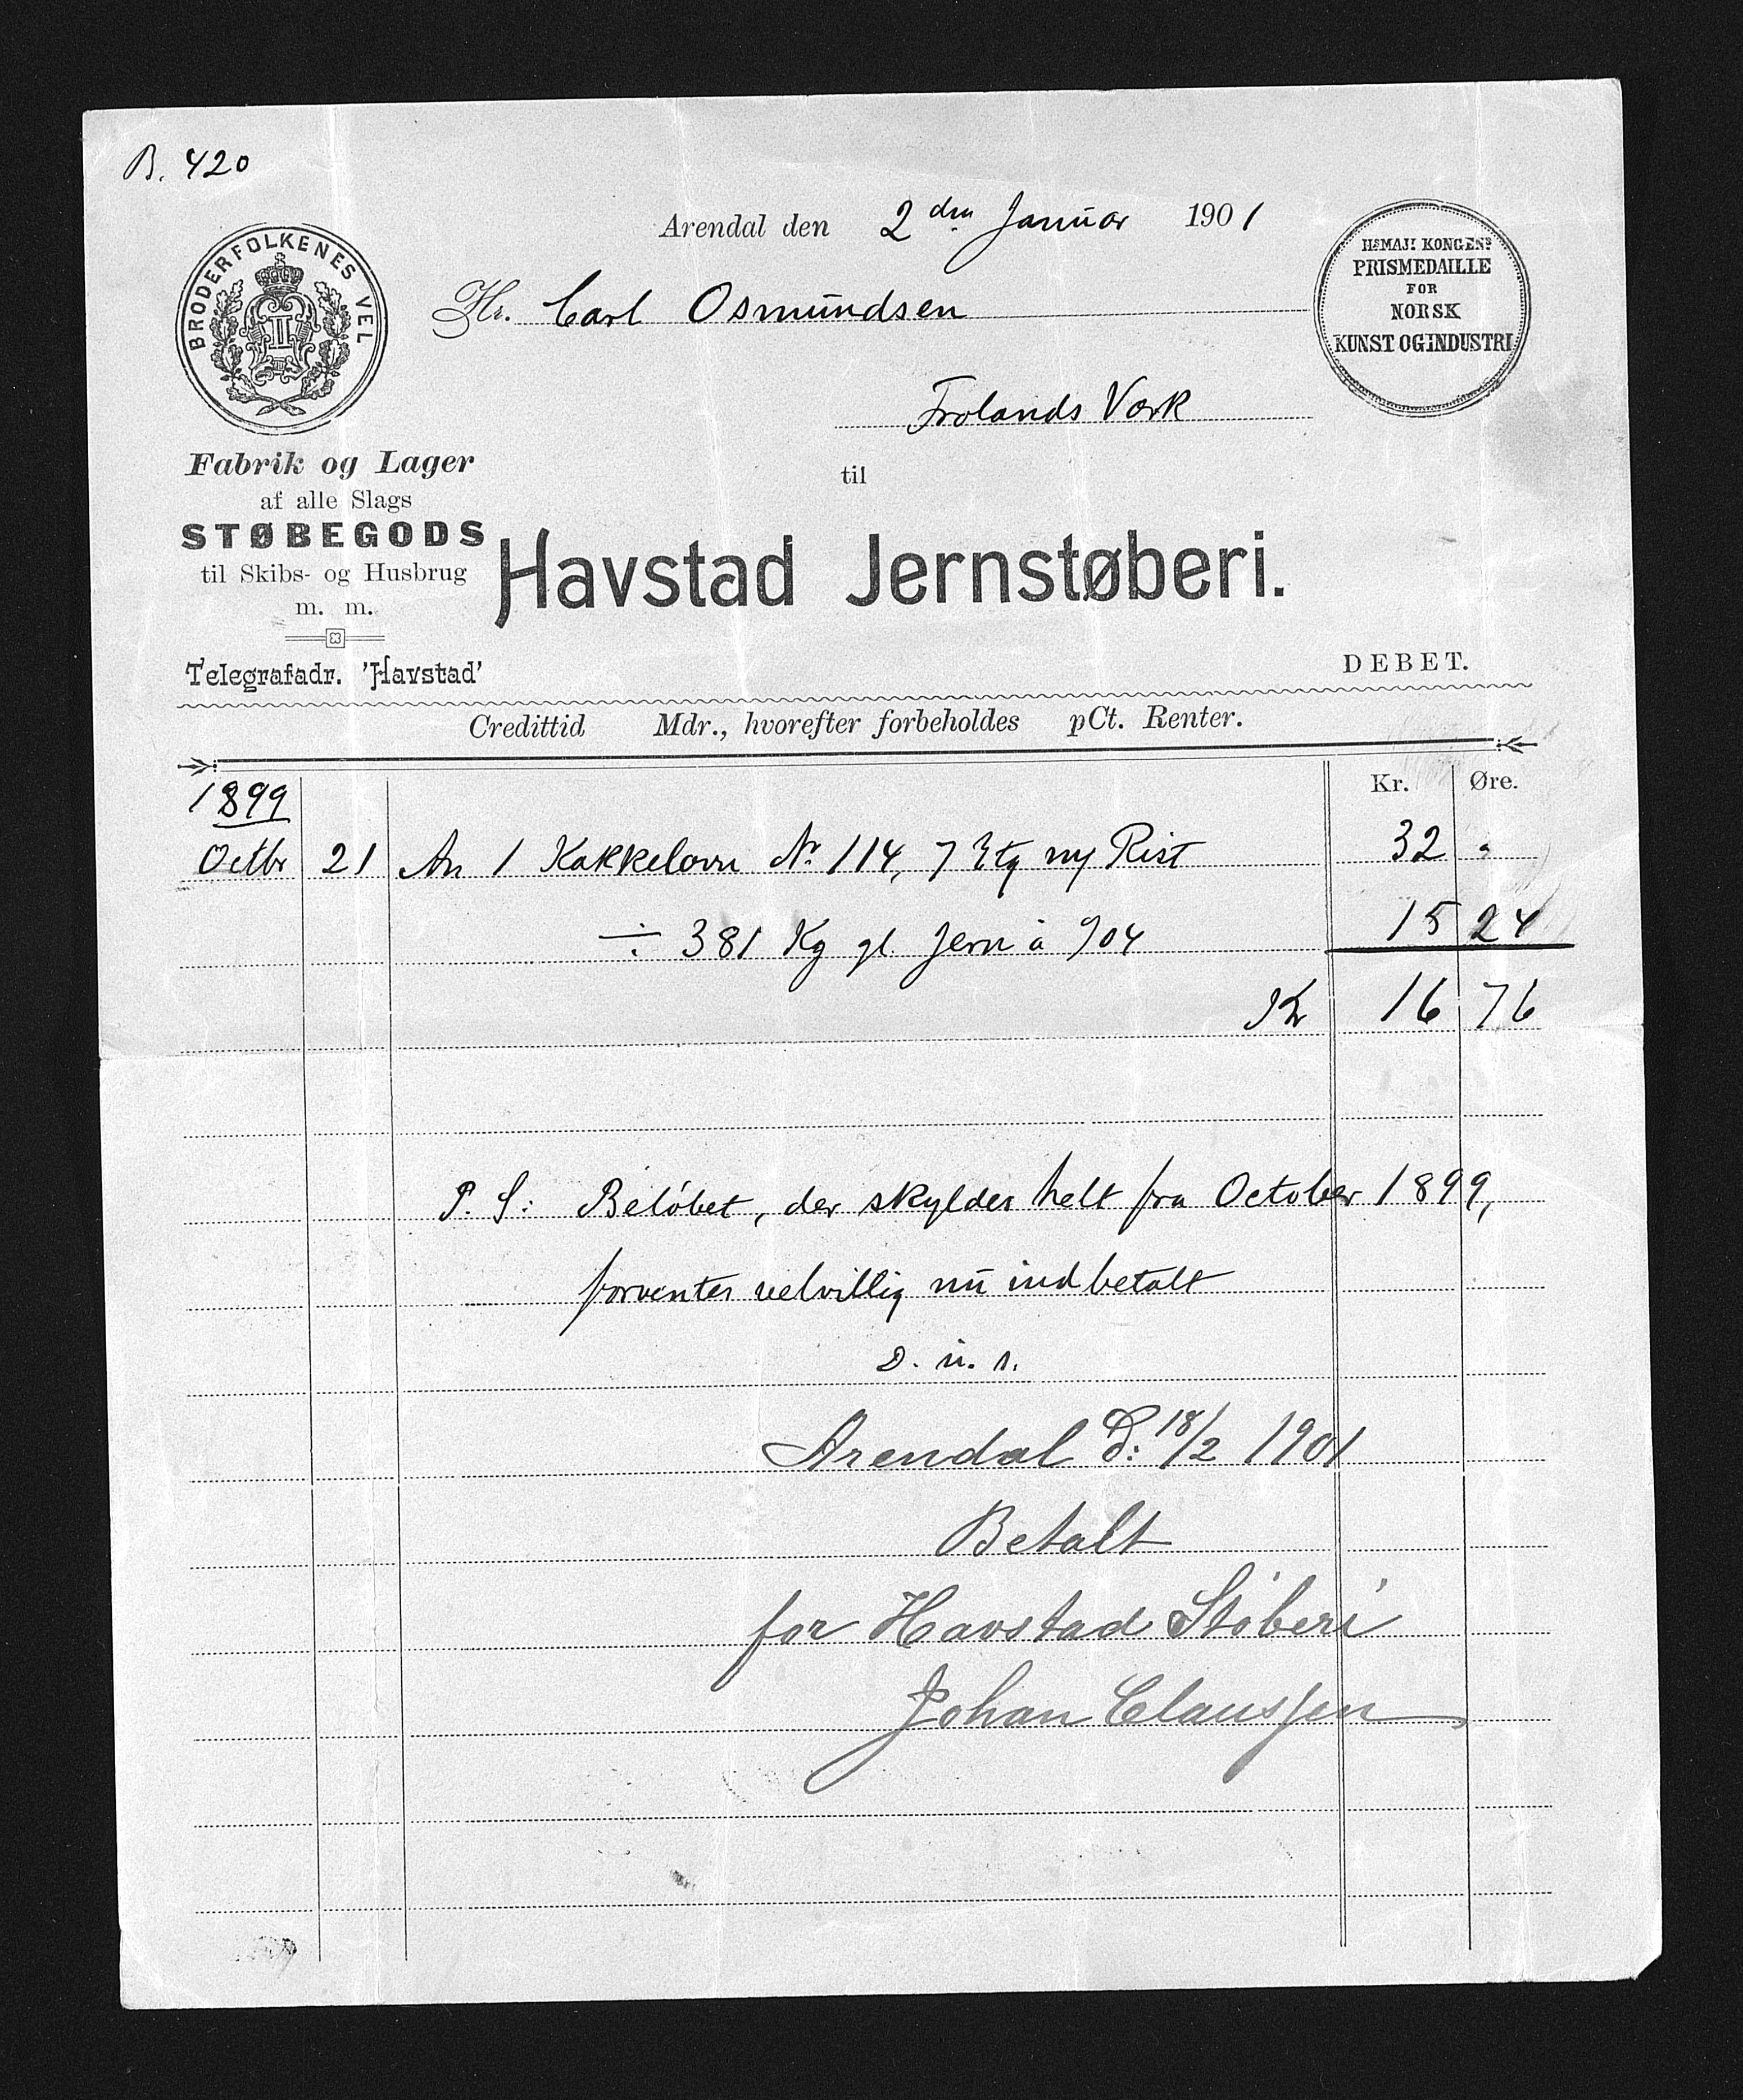 B. 420
Arendal den 2den Januar 1901
BRODERFOLKENES VEL
II
Hs MAJt KONGENS
PRISMEDAILLE
FOR
NORSK
KUNST OG INDUSTRI
Hr. Carl Osmundsen
Frolands Værk
Fabrik og Lager
af alle Slags
STØBEGODS
til Skibs- og Husbrug
m. m.
Telegrafadr. 'Havstad'
til
Havstad Jernstøberi.
DEBET.
Credittid Mdr., hvorefter forbeholdes pCt. Renter.
Kr. Øre.
1899
Octbr 21 An 1 Kakkelovn No 114, 7 Etg ny Rist 32 "
÷ 381 Kg gl. Jern à 904 15 24
Kr 16 76
P. S: Beløbet, der skyldes helt fra October 1899,
forventes velvillig nu indbetalt
D. u. s.
Arendal d: 18/2 1901
Betalt
for Havstad Støberi
Johan Claussen